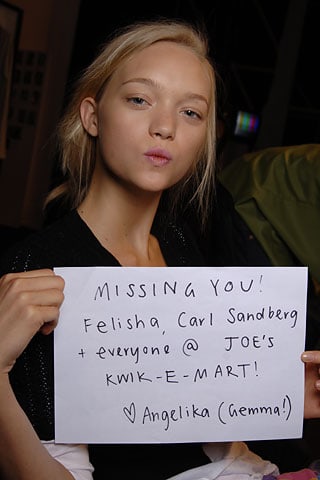 MISSING YOU!
Felisha, Carl Sandberg
+ everyone @ JOE'S
KWIK-E-MART!
♡ Angelika (Gemma!)